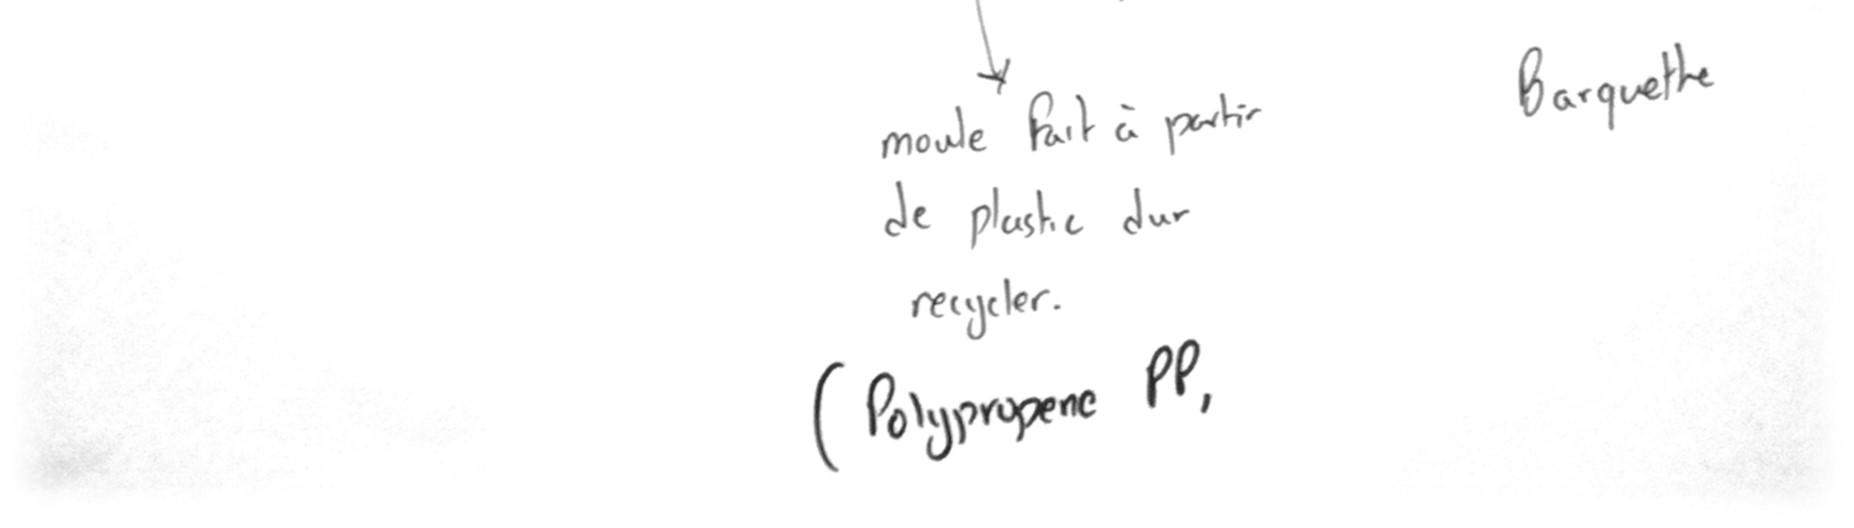 moule fait à partir
de plastic dur
recycler.
(Polypropene PP,
Barquethe